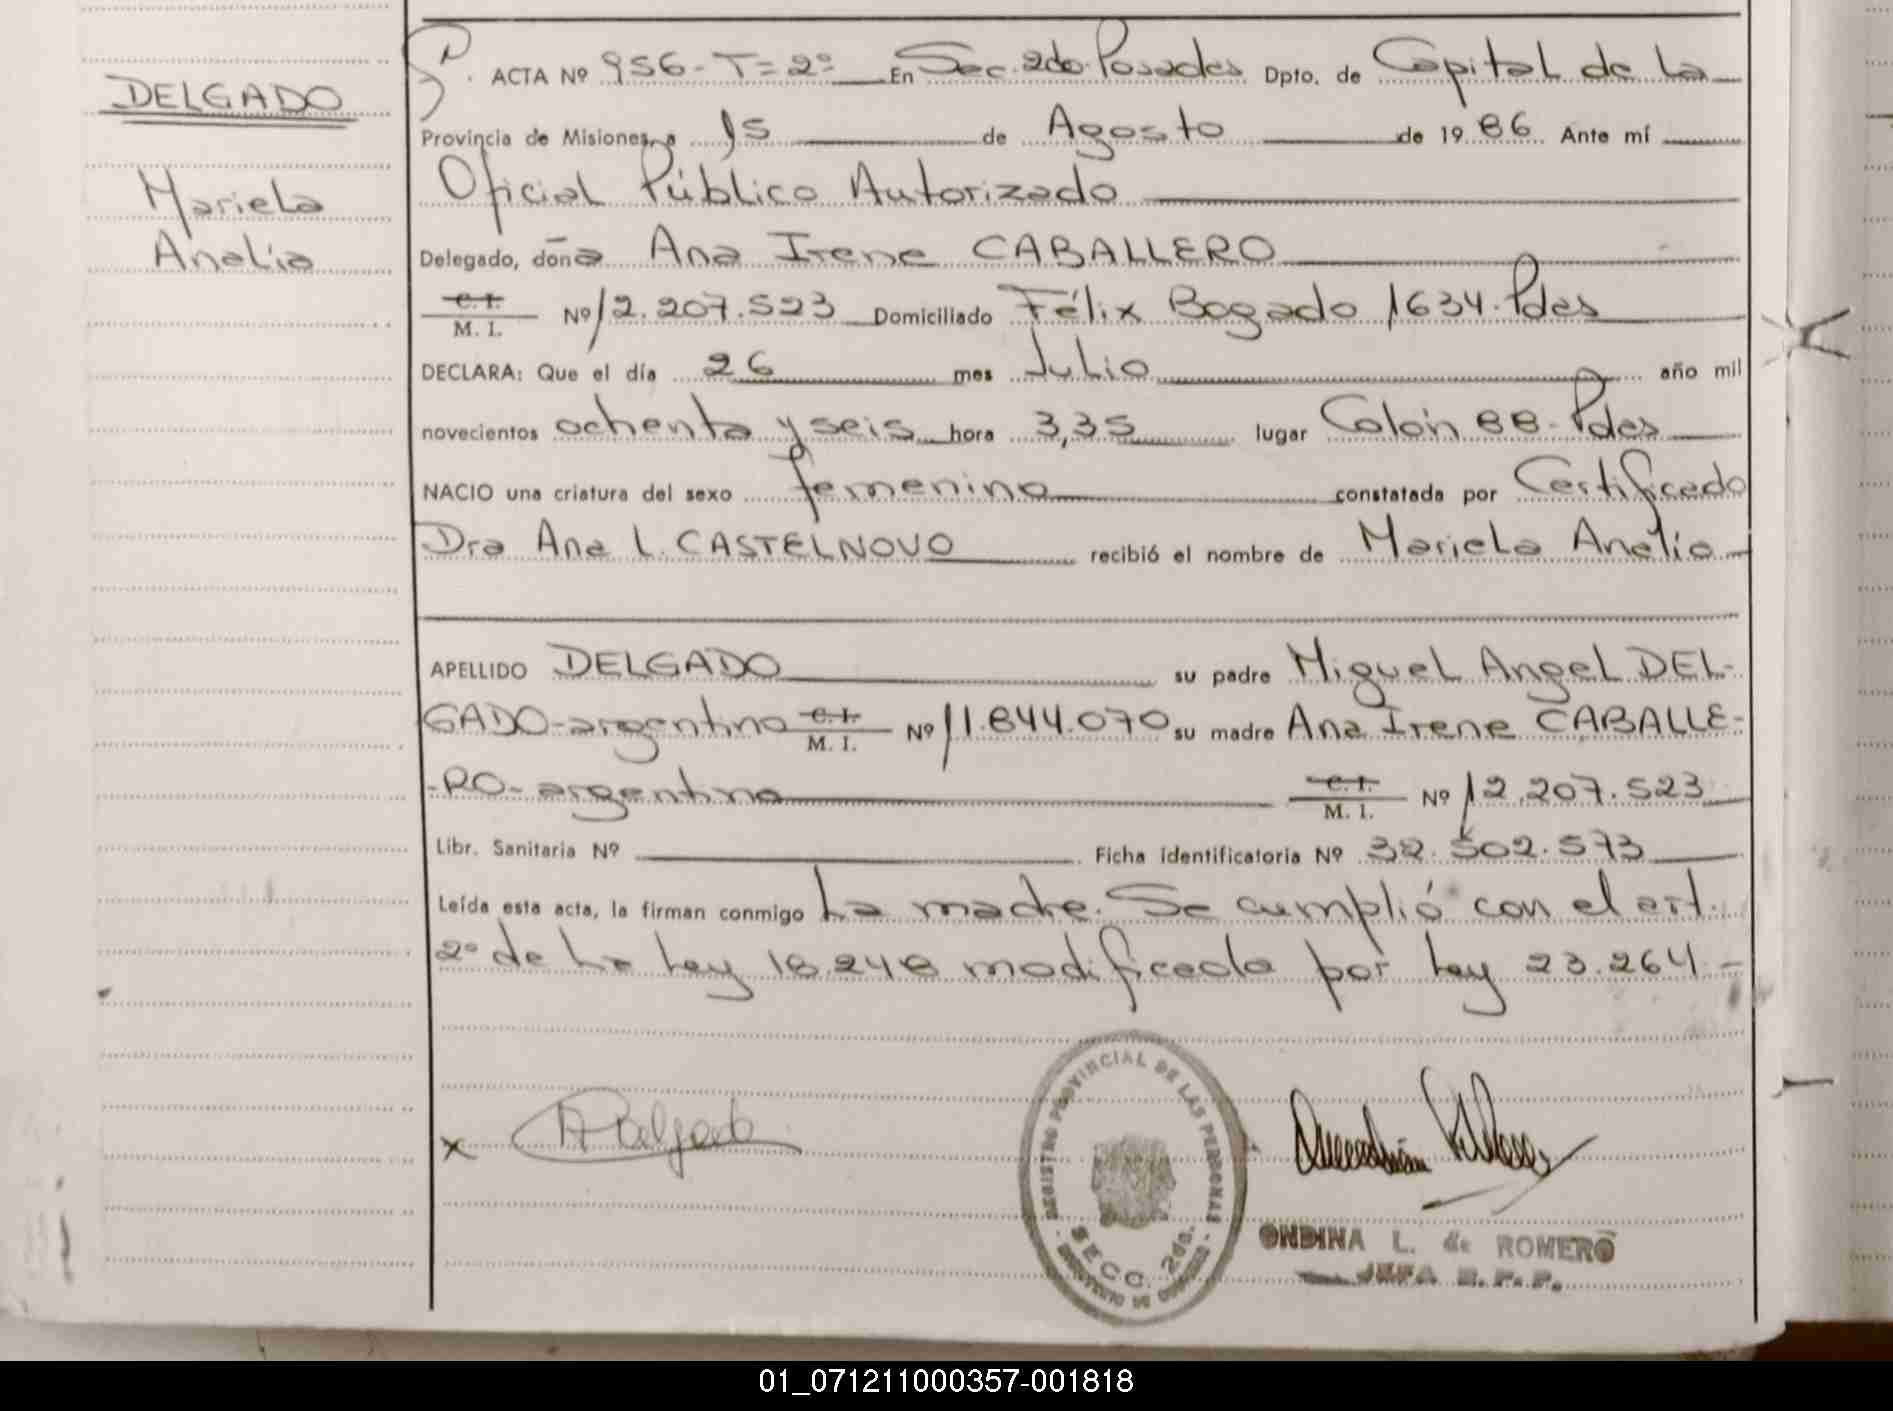 DELGADO
Mariela
Analía
ACTA Nº 956-T=2º En Sec. 2do. Posadas Dpto. de Capital de la
Provincia de Misiones, a 15 de Agosto de 1986 Ante mí
Oficial Público Autorizado
Delegado, doña Ana Irene CABALLERO
C.I. M. I. Nº 12.207.523 Domiciliado Félix Bogado 1634. Pdas
DECLARA: Que el día 26 mes Julio año mil
novecientos ochenta y seis hora 3,35 lugar Colón 88- Pdas
NACIO una criatura del sexo femenino constatada por Certificado
Dra Ana L. CASTELNOVO recibió el nombre de Mariela Analía
APELLIDO DELGADO su padre Miguel Angel DEL-
GADO-argentino C.I. M. I. Nº 11.844.070 su madre Ana Irene CABALLE-
-RO- argentina C.I. M. I. Nº 12.207.523
Libr. Sanitaria Nº Ficha identificatoria Nº 32.502.573
Leída esta acta, la firman conmigo La madre. Se cumplió con el art.
2º de la Ley 18.248 modificada por Ley 23.264-
x A Delgado
REGISTRO PROVINCIAL DE LAS PERSONAS
SECC. 2da.
ONDINA L. de ROMERO
JEFA
01_071211000357-001818